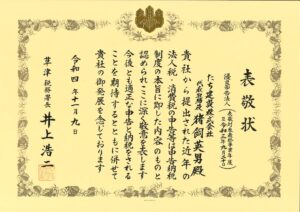 表敬状
優良申告法人
たち建設株式会社
代表取締役 猪飼英男殿
貴社から提出された近年の
法人税・消費税の申告等は申告納税
制度の本旨に即した内容のものと
認められここに深く敬意を表します
今後とも適正な申告と納税をされる
ことを期待するとともに併せて
貴社の御発展を念じております
令和四年十一月九日
草津税務署長 井上浩二